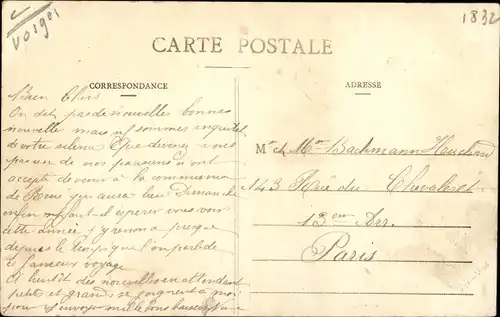 Vosges
1832
CARTE POSTALE
CORRESPONDANCE
ADRESSE
Bien Chers
On dit pas de nouvelles bonnes
nouvelle mais ns sommes inquiets
de votre silence Que devenez vous
pas un de nos parisiens à ont
accepté de venir à la communion
de René qui aura lieu Dimanche
enfin ns faut il espérer vous voir
cette année j'y renonce presque
depuis le temps que l'on parle de
ce fameux voyage
A bientôt des nouvelles en attendant
petits et grands se joignent à moi
pour envoyer mille bons baisers
Mr et Me Bachmann
143 Rue du Chevaleret
13em Arr.
Paris